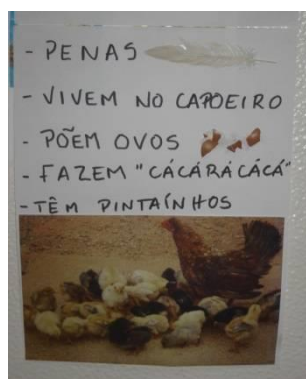 - PENAS
- VIVEM NO CAPOEIRO
- PÕEM OVOS
- FAZEM "CÁCÁRÁCÁCÁ"
- TÊM PINTAÍNHOS